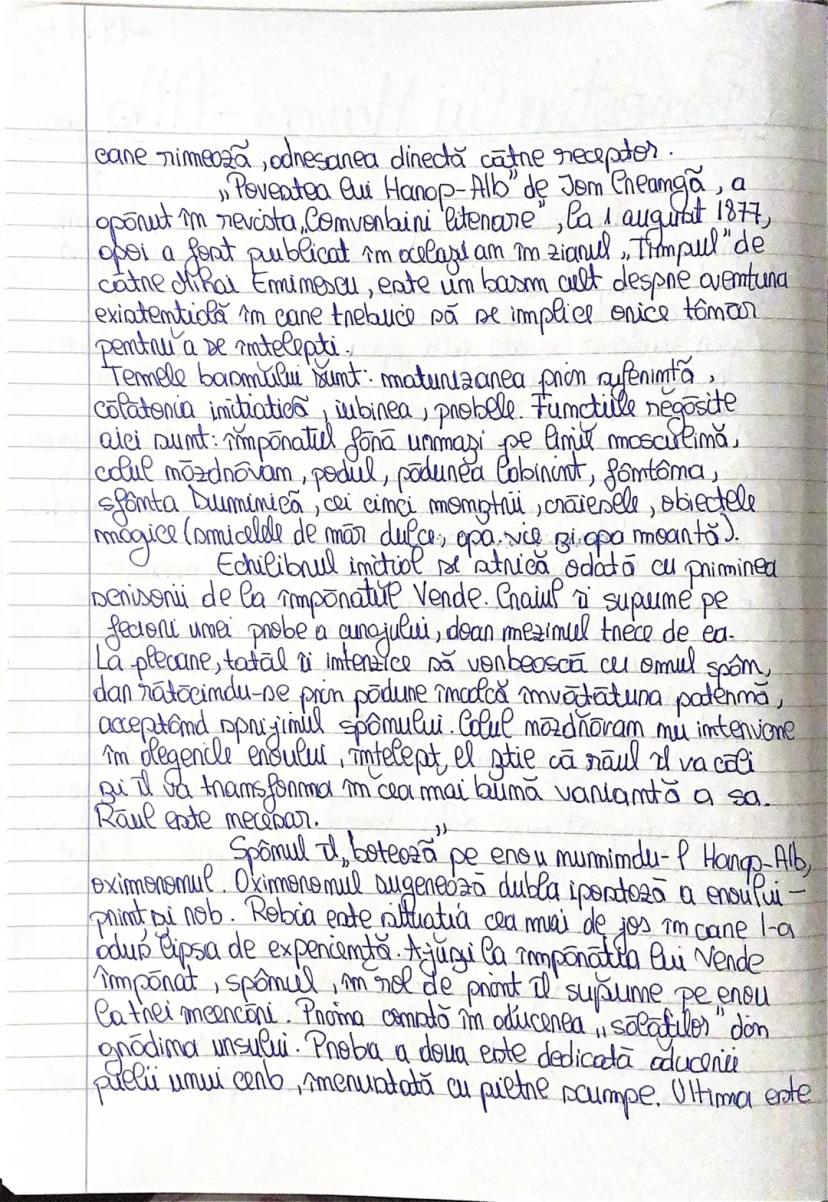 care rimează, adresarea directă cătne receptor.
„Povestea lui Harap-Alb" de Ion Creangă, a
apărut în revista „Convorbiri literare", la 1 august 1877,
apoi a fost publicat în același an în ziarul „Timpul" de
cătne Mihai Eminescu, este un basm cult despre aventura
existențială în care trebuie să se implice orice tânăr
pentru a se înțelepți.
Temele basmului sunt: maturizarea prin suferință,
călătoria inițiatică, iubirea, probele. Funcțiile regăsite
aici sunt: împăratul fără urmași pe linie masculină,
calul năzdrăvan, podul, pădurea labirint, fântâna,
sfânta Duminică, cei cinci monștrii, crăiesele, obiectele
magice (smicelele de măr dulce, apa vie și apa moartă).
Echilibrul inițial se strică odată cu primirea
scrisorii de la împăratul Verde. Craiul îi supune pe
feciori unei probe a curajului, doar mezinul trece de ea.
La plecare, tatăl îi interzice să vorbească cu omul spân,
dar rătăcindu-se prin pădure încalcă învățătura paternă,
acceptând sprijinul spânului. Calul năzdrăvan nu intervine
în alegerile eroului, înțelept, el știe că răul îl va căli
și îl va transforma în cea mai bună variantă a sa.
Răul este necesar.
Spânul îl „botează" pe erou numindu-l Harap-Alb,
oximoronul. Oximoronul sugerează dubla ipostază a eroului –
prinț și rob. Robia este situația cea mai de jos în care l-a
adus lipsa de experiență. Ajunși la împărăția lui Verde
împărat, spânul, în rol de prinț îl supune pe erou
la trei încercări. Prima constă în aducerea „sălăților" din
grădina ursului. Proba a doua este dedicată aducerii
pielii unui cerb, încrustată cu pietre scumpe. Ultima este